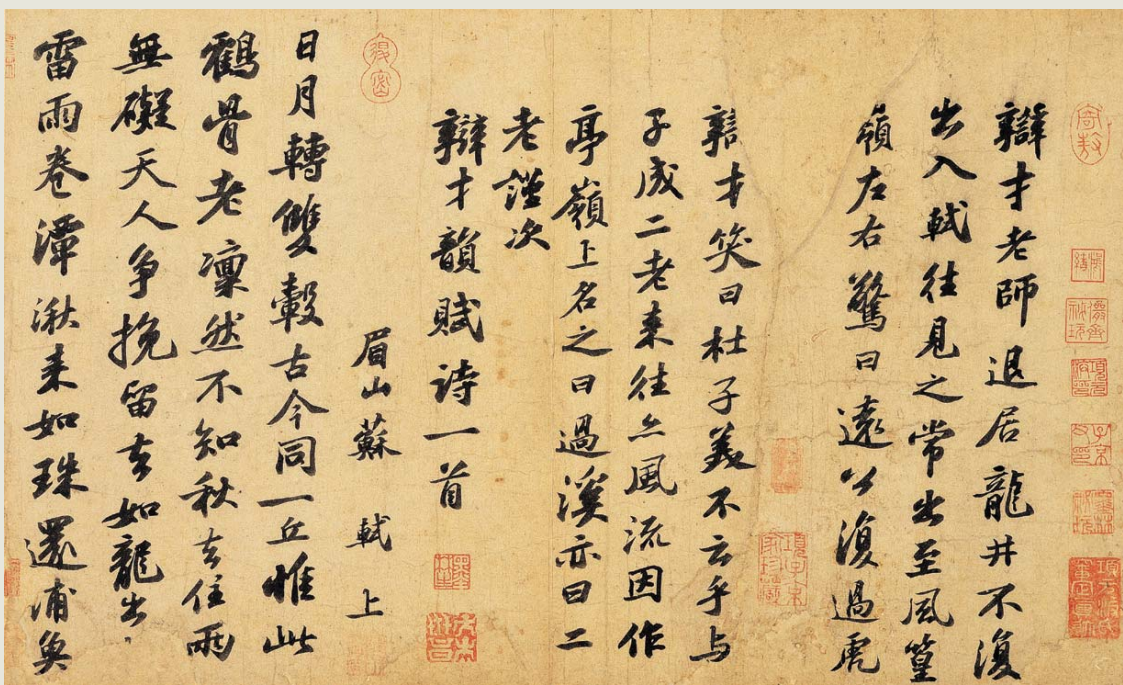 辯才老師退居龍井不復
出入軾往見之常出至風篁
嶺左右驚曰遠公復過虎
辯才笑曰杜子美不云乎与
子成二老来往亦風流因作
亭嶺上名之曰過溪亦曰二
老謹次
辯才韻賦詩一首
眉山蘇軾上
日月轉雙轂古今同一丘惟此
鶴骨老凜然不知秋去住兩
無礙天人争挽留去如龍出
雷雨卷潭湫来如珠還浦魚
項子京家珍藏